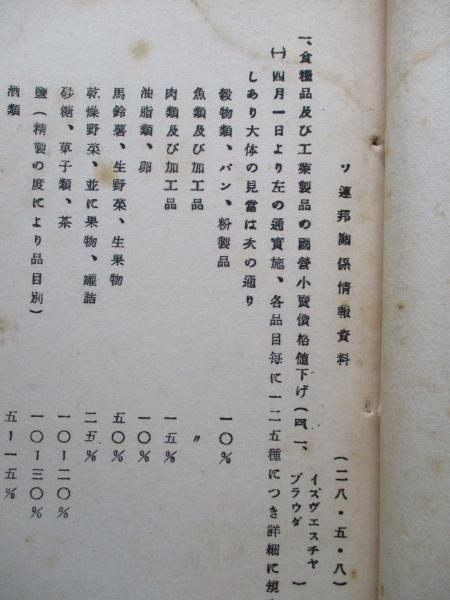 ソ連邦關係情報資料 (二八・五・八)
一、食糧品及び工業製品の國營小賣價格値下げ(四、一、イズヴェスチヤ プラウダ)
㈠四月一日より左の通實施、各品目毎に一二五種につき詳細に規
しあり大体の見當は次の通り
穀物類、パン、粉製品 一〇%
魚類及び加工品 〃
肉類及び加工品 一五%
油脂類、卵 一〇%
馬鈴薯、生野菜、生果物 五〇%
乾燥野菜、並に果物、罐詰 二五%
砂糖、菓子類、茶 一〇-二〇%
鹽(精製の度により品目別) 一〇-三〇%
酒類 五-一五%